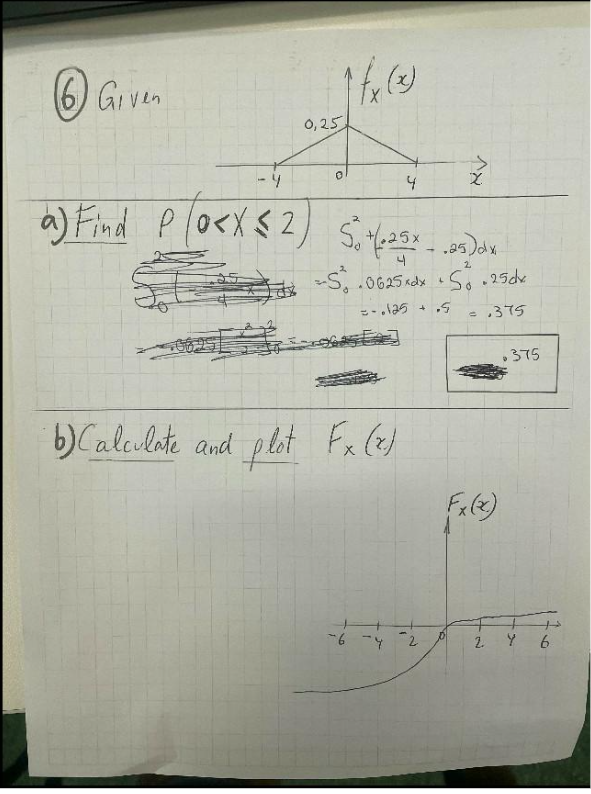 6 Given
fx(x)
0,25
-4 0 4 x
a) Find P(0<X≤2)
S₀² +(.25x/4 - .25)dx
=-S₀² .0625xdx + S₀² .25dx
=-.125 + .5 = .375
.375
b) Calculate and plot Fx(x)
Fx(x)
-6 -4 -2 0 2 4 6